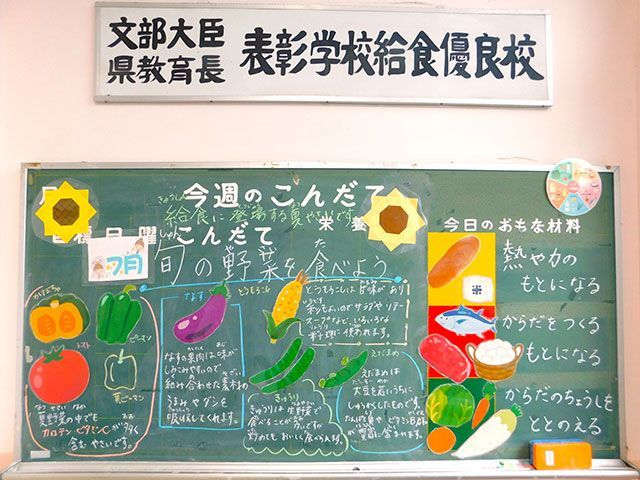 文部大臣
県教育長
表彰学校給食優良校
今週のこんだて
きゅうしょく
給食に登場する夏やさいです
栄養
曜
こんだて
今日のおもな材料
7月
しゅん
旬の野菜を食べよう
た
かぼちゃ
ピーマン
トマト
黄ピーマン
夏野菜の中でも
カロテン ビタミンCが多く
含むやさいです。
なす
なすの果肉は味が
しみこみやすいので
組み合わせた素材の
うまみやダシを
吸収してくれます。
とうもろこし
とうもろこしは甘味があり
粒もよいのでサラダやソテー
スープなど、いろいろな
料理に使われます。
きゅうり
きゅうりは生野菜で
食べることが多いですが
炒めてもおいしく食べられます。
えだまめ
えだまめは
大豆を若いうちに
しゅうかくしたものです。
たんぱく質やビタミンB群
が豊富に含まれます。
熱や力の
もとになる
米
からだをつくる
もとになる
からだのちょうしを
ととのえる